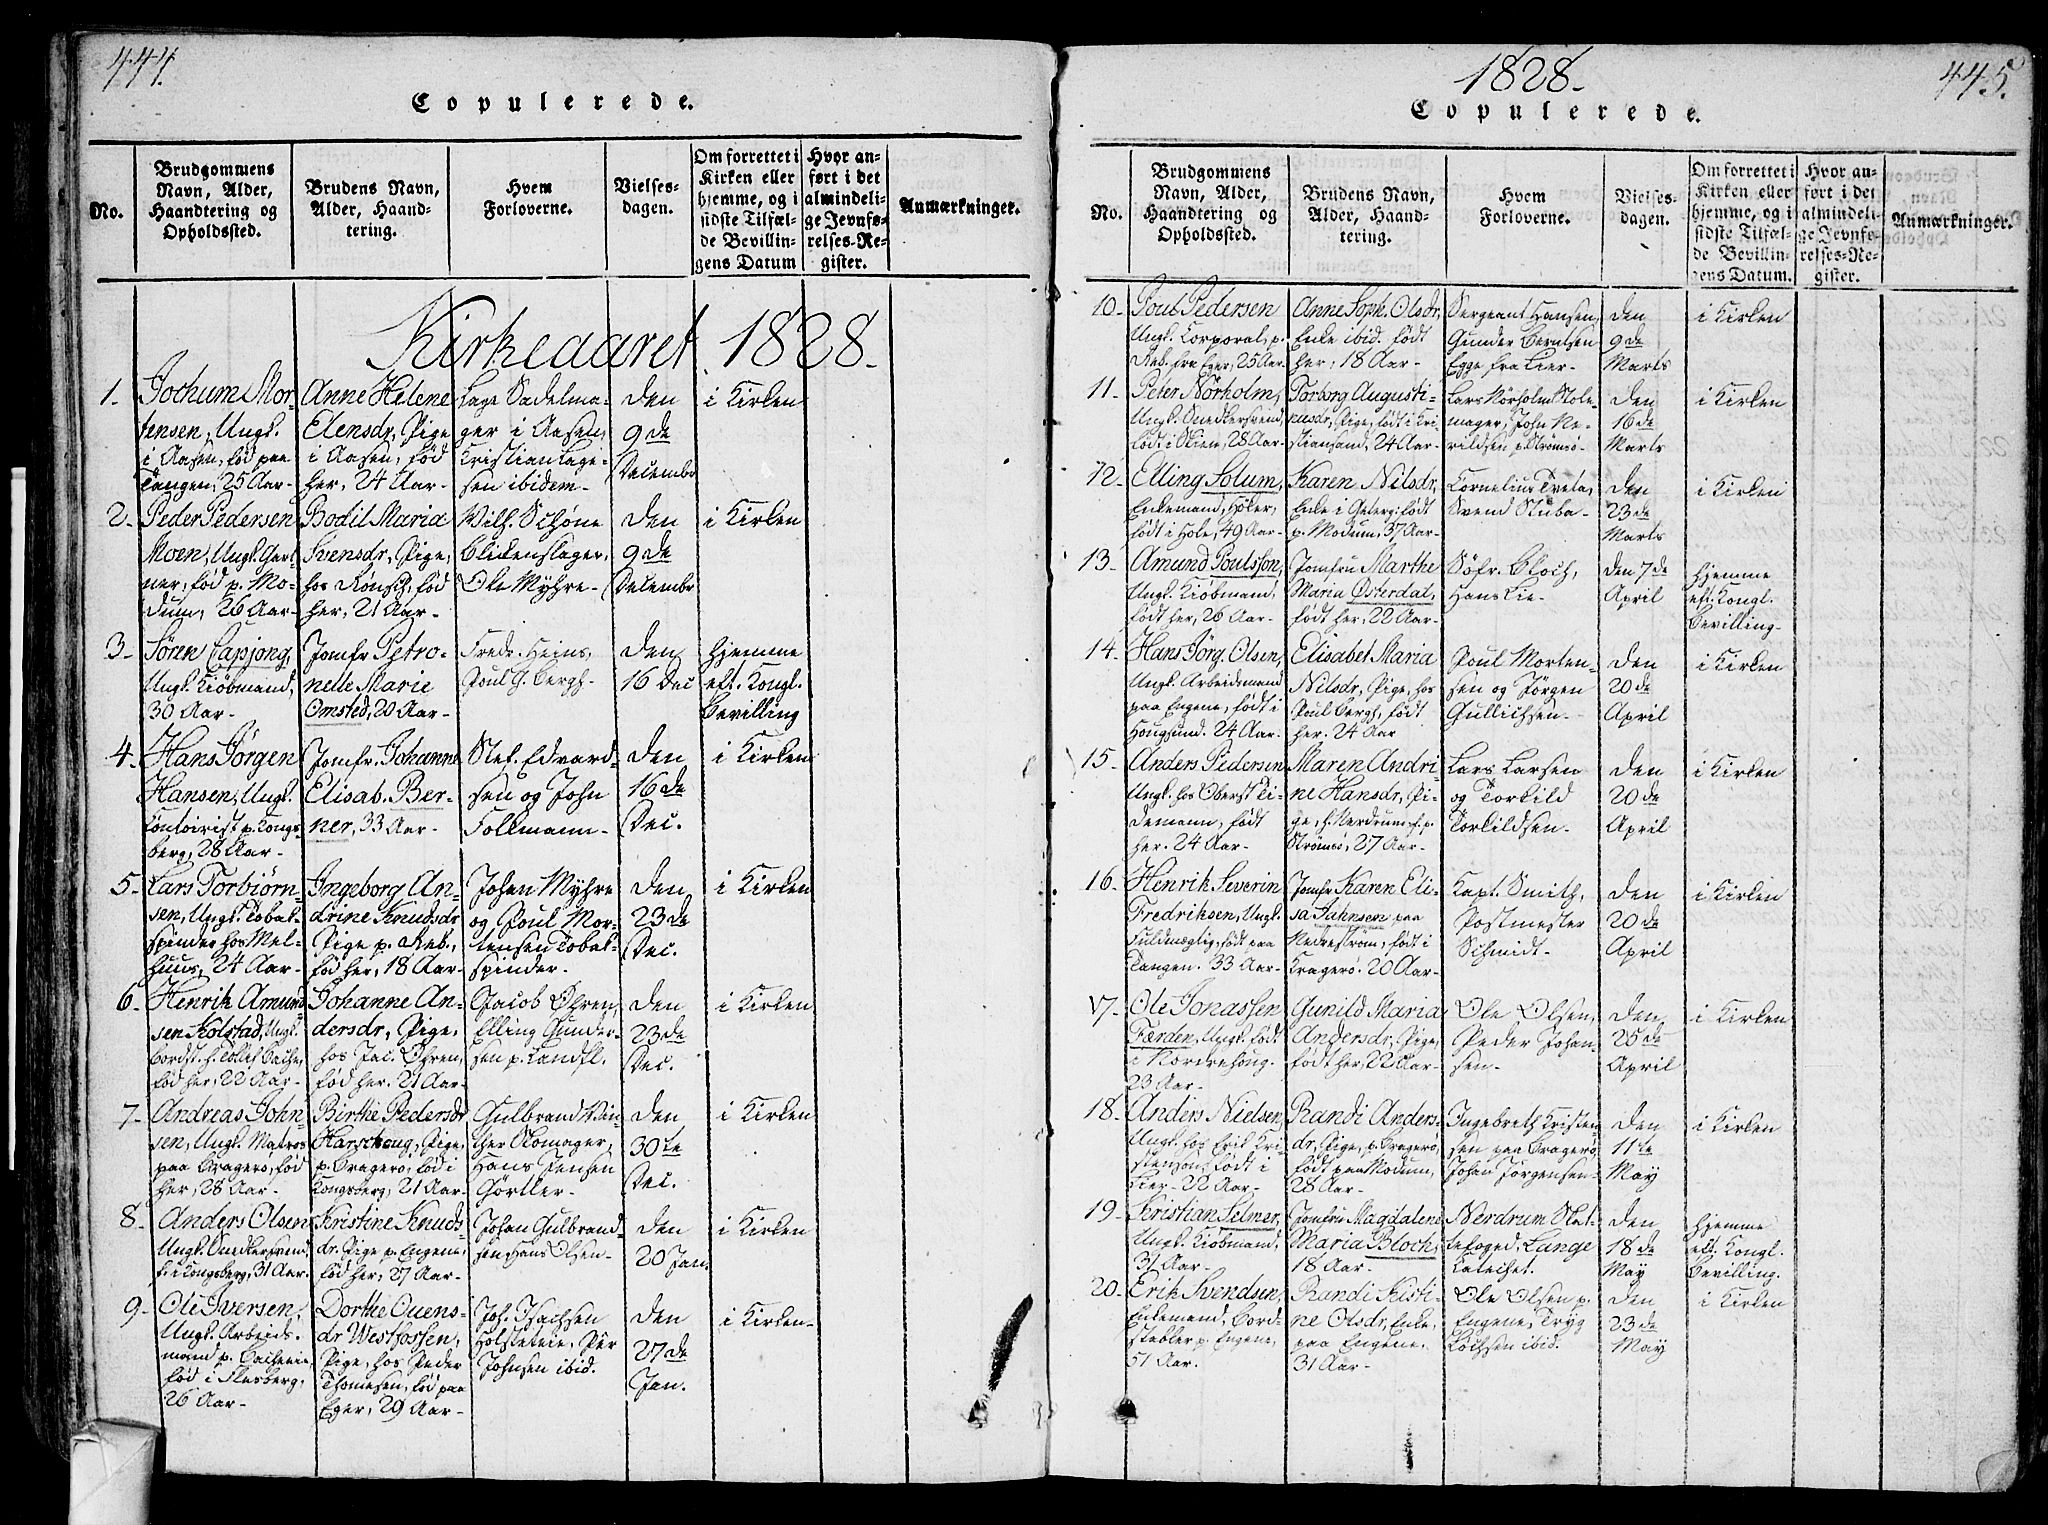 444.
Copulerede.
No.
Brudgommens Navn, Alder, Haandtering og Opholdssted.
Brudens Navn, Alder, Haandtering.
Hvem Forloverne.
Vielsesdagen.
Om forrettet i Kirken eller hjemme, og i sidste Tilfælde Bevillingens Datum
Hvor anført i det almindelige Jevnførelses-Register.
Anmærkninger.
Kirkeaaret 1828.
1.
Jochum Mortensen, Ungk. i Aasen, fød paa Tangen, 25 Aar
Anne Helene Elensdr, Pige i Aasen, fød her, 24 Aar
Lage Sadelmager i Aasen, Kristian Lagesen ibidem
Den 9de Decembr
i Kirken
2.
Peder Pedersen Moen, Ungk. Gertner, fød p. Modum, 26 Aar
Bodil Maria Svensdr, Pige, hos Rönsch, fød her, 21 Aar
Wilh. Schøne Blikenslager, Ole Myhre
Den 9de Decembr
i Kirken
3.
Søren Capjong, Ungk. Kiöbmand, 30 Aar
Jomfr Petronelle Marie Omsted, 20 Aar
Fredr. Heins, Poul G. Bergh
Den 16 Dec
hjemme eft. Kongl. Bevilling
4.
Hans Jørgen Hansen, Ungk. Contoirist p. Kongsberg, 28 Aar
Jomfr. Johanne Elisab. Berner, 33 Aar
Stef. Edvardsen og John Follmann
Den 16de Dec.
i Kirken
5.
Lars Torbiørnsen, Ungk. Tobakspinder hos Melhuus, 24 Aar
Ingeborg Andrine Knudsdr Pige p. Reb., fød her, 18 Aar
Johan Myhre og Poul Mortensen Tobakspinder
Den 23de Dec.
i Kirken
6.
Henrik Amundsen Kolstad, Ungk. Bordst. h. Tollef Bache, fød her, 22 Aar
Johanne Andersdr, Pige, hos Jac. Øhren, fød her, 21 Aar
Jacob Øhren, Elling Gundersen p. Landfl.
Den 23de Dec.
i Kirken
7.
Andreas Johnsen, Ungk. Matros paa Bragerø, fød her, 28 Aar
Birthe Pedersdr Harschoug, Pige, p. Bragerø, fød i Kongsberg, 21 Aar
Gulbrand Winther Skomager, Hans Jensen Görtler
Den 30te Dec.
i Kirken
8.
Anders Olsen Ungk. Snedkersvend f. i Kongsberg, 31 Aar
Kristine Knudsdr. Pige p. Engene, fød her, 27 Aar
Johan Gulbrandsen Hans Olsen
Den 20 Jan.
i Kirken
9.
Ole Iversen, Ungk. Arbeidsmand p. Bacheeie, fød i Flesberg, 26 Aar
Dorthe Ouensdr Westfossen, Pige, hos Peder Thomesen, fød paa Eger, 29 Aar
Joh. Isachsen Holsteteie, Per Johnsen ibid.
Den 27de Jan.
i Kirken
1828.
445.
Copulerede.
No.
Brudgommens Navn, Alder, Haandtering og Opholdssted.
Brudens Navn, Alder, Haandtering.
Hvem Forloverne.
Vielsesdagen.
Om forrettet i Kirken eller hjemme, og i sidste Tilfælde Bevillingens Datum.
Hvor anført i det almindelige Jevnførelses-Register.
Anmærkninger.
10.
Poul Pedersen Ungk. Corporal, p. Reb. fra Eger, 25 Aar
Anne Soph. Olsdr, Enke ibid. født her, 18 Aar
Sergeant Hansen, Gunder Berntsen Egge fra Lier
Den 9de Marts
i Kirken
11.
Peter Nörholm, Ungk. Snedkersvend, født i Skien, 28 Aar
Torborg Augustinusdr, Pige, født i Kristiansand, 24 Aar
Lars Nörholm Stolemager, John Nerildsen p. Strømsö
Den 16de Marts
i Kirken
12.
Elling Solum, Enkemand, Høker, født i Hole, 49 Aar
Karen Nilsdr, Enke i Geterg: født p. Modum, 37 Aar
Cornelius Tveta, Svend Stuba
Den 23de Marts
i Kirken
13.
Amund Poulsson, Ungk. Kiöbmand, født her, 26 Aar
Jomfru Marthe Maria Østerdal, født her, 22 Aar
Söfr. Bloch, Hans Kie
Den 7de April
hjemme eft. Kongl. Bevilling
14.
Hans Jörg. Olsen, Ungk. Arbeidsmand paa Engene, født i Hougsund. 24 Aar
Elisabet Maria Nilsdr, Pige, hos Poul Bergh, født her. 24 Aar
Poul Mortensen og Jørgen Gullichsen
Den 20de April
i Kirken
15.
Anders Pedersen Ungk. hos Oberst Tidemann, født her. 24 Aar
Maren Andrine Hansdr, Pige, h. Nerdrum f. p. Strømsö, 27 Aar
Lars Larsen og Torkild Torkildsen
Den 20de April
i Kirken
16.
Henrik Severin Fredriksen, Ungk. Fuldmægtig, født paa Tangen. 33 Aar
Jomfr Karen Elisa Jahnsen paa Nedrestrøm, født i Kragerö. 20 Aar
Kapt. Smith, Postmester Schmidt
Den 20de April
i Kirken
17.
Ole Jonassen Færden, Ungk. født i Nordrehoug. 23 Aar
Gunild Maria Andersdr, Pige, født her, 22 Aar
Ole Olsen, Peder Johansen
Den 25de April
i Kirken
18.
Anders Nielsen Ungk. hos Erik Kristensen, født i Lier 22 Aar
Randi Andersdr, Pige, p. Bragerø, født paa Modum, 28 Aar
Ingebreth Kristensen paa Bragerö, Johan Jørgensen
Den 11te May
i Kirken
19.
Kristian Selmer, Ungk. Kiöbmand, 31 Aar
Jomfru Magdalene Maria Bloch, 18 Aar
Nerdrum Slottsfoged, Lange Catechet.
Den 18de May
hjemme eft. Kongl. Bevilling.
20.
Erik Svendsen, Enkemand, Bordstabler p. Engene, 51 Aar.
Randi Kistine Olsdr, Enke, paa Engene, 31 Aar
Ole Olsen p. Engene, Tryg Löchsen ibid.
Den 23de May
i Kirken